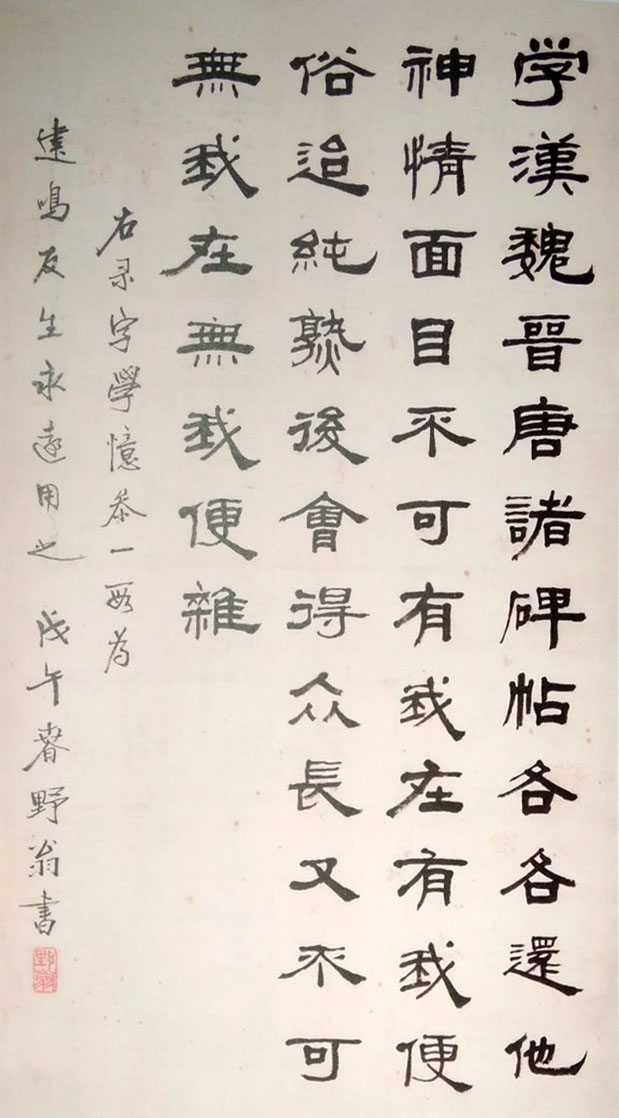 学漢魏晉唐諸碑帖各各還他
神情面目不可有我在有我便
俗迨純熟後會得众長又不可
無我在無我便雜
右录字學憶參一段為
建鳴友生永遠用之 戊午春野翁書
野翁